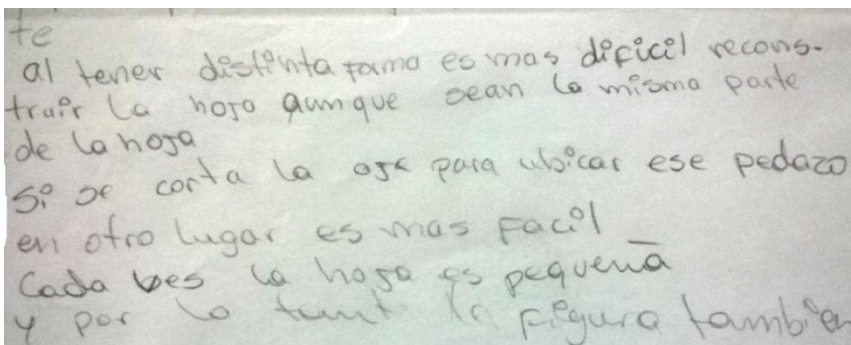 te
al tener distinta forma es mas dificil recons-
truir la hoja aunque sean la misma parte
de la hoja
si se corta la oja para ubicar ese pedazo
en otro lugar es mas facil
Cada bes la hoja es pequeña
y por lo tant la figura tambien